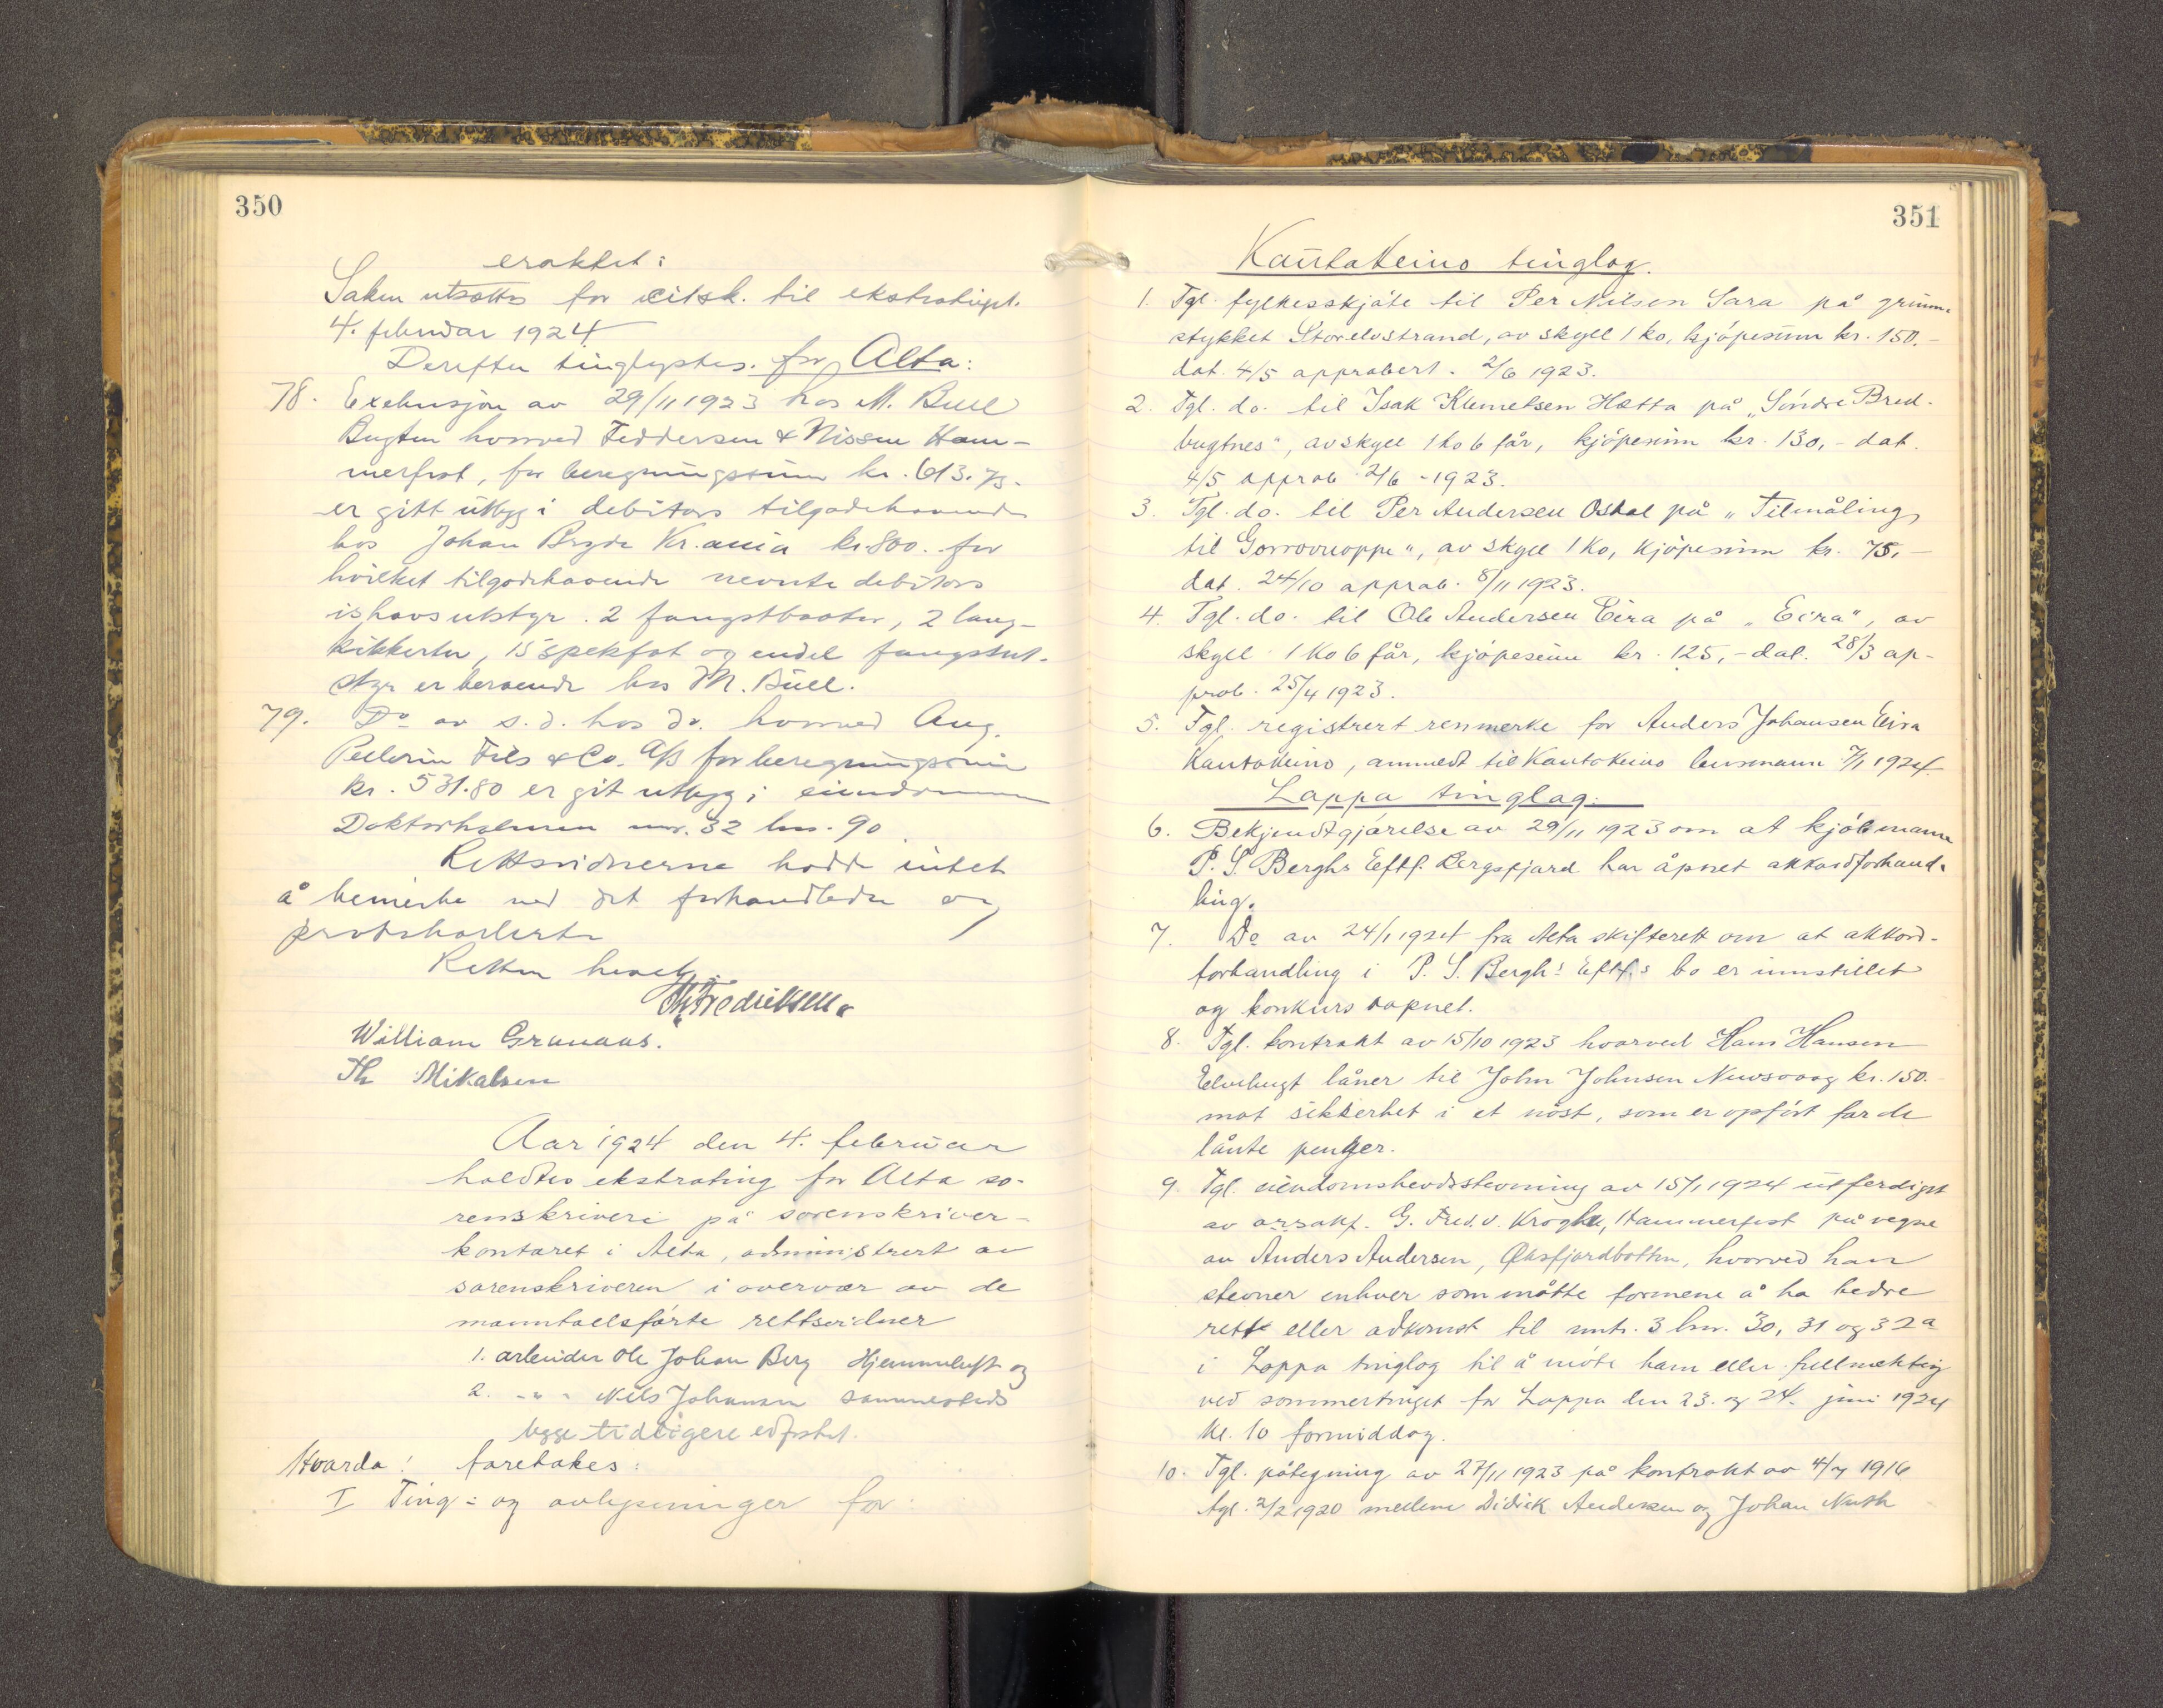 350
eraktet:
Saken utsættes for citsk. til ekstratinget
4. februar 1924
Derefter tinglystes for Alta:
78. Exekusjon av 29/11 1923 hos M. Buel
Bugten hvorved Feddersen & Nissen Ham-
merfest, for beregningssum kr. 613.73.
er gitt utlegg i debitors tilgodehavende
hos Johan Bryde Kr.ania kr. 800. for
hvilket tilgodehavende nevnte debitors
ishavsutstyr. 2 fangstbaater, 2 lang-
kikkerter, 15 spekfat og endel fangstut-
styr er beroende hos M. Buel.
79. Do av s.d. hos do. hvorved Aug.
Pellerin Fils & Co. A/S for beregningssum
kr. 531.80 er git utlegg i eiendommen
Doktorholmen mnr. 32 bnr. 90
Rettsvidnerne hadde intet
å bemerke ved det forhandlede og
protokollerte
Retten hevet
Fredriksen.
William Granaas.
Th Mikalsen
Aar 1924 den 4. februar
holdtes ekstrating for Alta so-
renskriveri på sorenskriver-
kontoret i Alta, administrert av
sorenskriveren i overvær av de
manntallsførte rettsvidner
1. arbeider Ole Johan Berg Hjemmeluft og
2. -"- Nils Johansen sammesteds
begge tidligere edfestet.
Hvorda! foretokes:
I Ting- og avlysninger for:
351
Kautokeino tinglag.
1. Tgl. fylkesskjøte til Per Nilsen Sara på grunn-
stykket Storelvstrand, av skyll 1 ko, kjøpesum kr. 150.-
dat. 4/5 approbert. 2/6 1923.
2. Tgl. do. til Isak Klemetsen Hætta på "Søndre Bred-
bugtnes", av skyll 1 ko 6 får, kjøpesum kr. 130,- dat.
4/5 approb 2/6 - 1923.
3. Tgl. do. til Per Andersen Oskal på "Tilmåling
til Gorrovuoppe", av skyll 1 Ko, kjøpesum kr. 75,-
dat. 24/10 approb. 8/11 1923.
4. Tgl. do. til Ole Andersen Eira på "Eira", av
skyll 1 Ko 6 får, kjøpesum kr. 125,- dat. 28/3 ap-
prob. 25/4 1923.
5. Tgl. registrert renmerke for Anders Johansen Eira
Kautokeino, anmeldt til Kautokeino lensmann 7/1 1924.
Loppa tinglag.
6. Bekjendtgjørelse av 29/11 1923 om at kjøbmann
P. S. Berghs Eftf. Bergsfjord har åpnet akkordforhand-
ling.
7. Do av 24/1 1924 fra Alta skifterett om at akkord-
forhandling i P. S. Bergh's Eftf.s bo er innstillet
og konkurs aapnet.
8. Tgl. kontrakt av 15/10 1923 hvorved Hans Hansen
Elvebugt låner til John Johnsen Nuvsvaag kr. 150.
mot sikkerhet i et nøst, som er opført for de
lånte penger.
9. Tgl. eiendomshevdsstevning av 15/1 1924 utferdiget
av o.r.sakf. G. Fred. v. Krogh, Hammerfest på vegne
av Anders Andersen, Øksfjordbotten, hvorved han
stevner enhver som måtte formene å ha bedre
rett eller adkomst til mnr. 3 bnr. 30, 31 og 32a
i Loppa tinglag til å møte ham eller fullmektig
ved sommertinget for Loppa den 23. og 24. juni 1924
kl. 10 formiddag.
10. Tgl. påtegning av 27/11 1923 på kontrakt av 4/7 1916
tgl. 2/2 1920 mellem Didrik Andersen og Johan Nuth